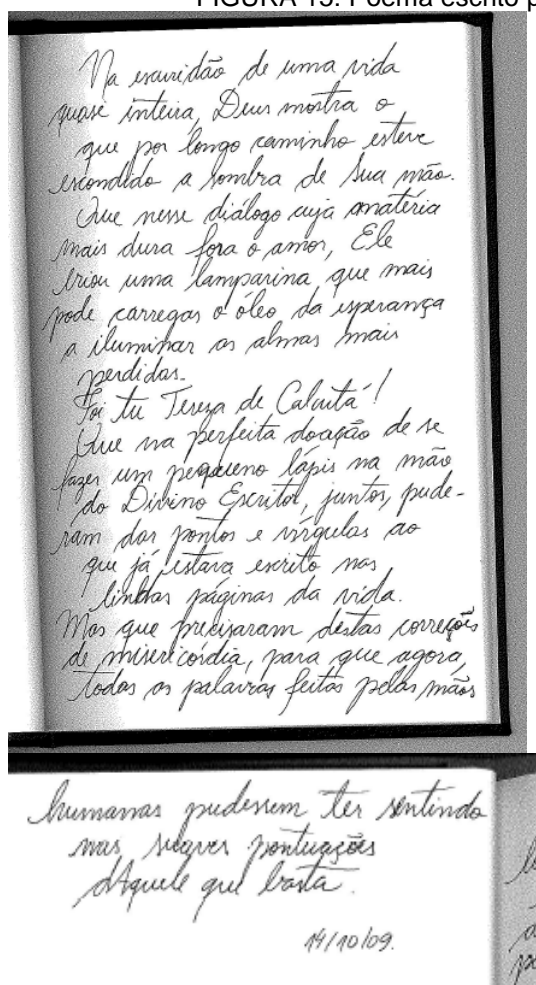 FIGURA 15: Poema escrito p
Na escuridão de uma vida
quase inteira, Deus mostra o
que por longo caminho esteve
escondido a sombra de Sua mão.
Que nesse diálogo cuja matéria
mais dura fora o amor, Ele
criou uma lamparina que mais
pode carregar o óleo da esperança
a iluminar as almas mais
perdidas.
Foi tu Tereza de Calcutá!
Que na perfeita doação de se
fazer um pequeno lápis na mão
do Divino Escritor, juntos, pude-
ram dar pontos e vírgulas ao
que já estava escrito nas
lindas páginas da vida.
Mas que precisaram destas correções
de misericórdia, para que agora,
todas as palavras feitas pelas mãos
humanas pudessem ter sentindo
nas suaves pontuações
dAquele que basta.
14/10/09.